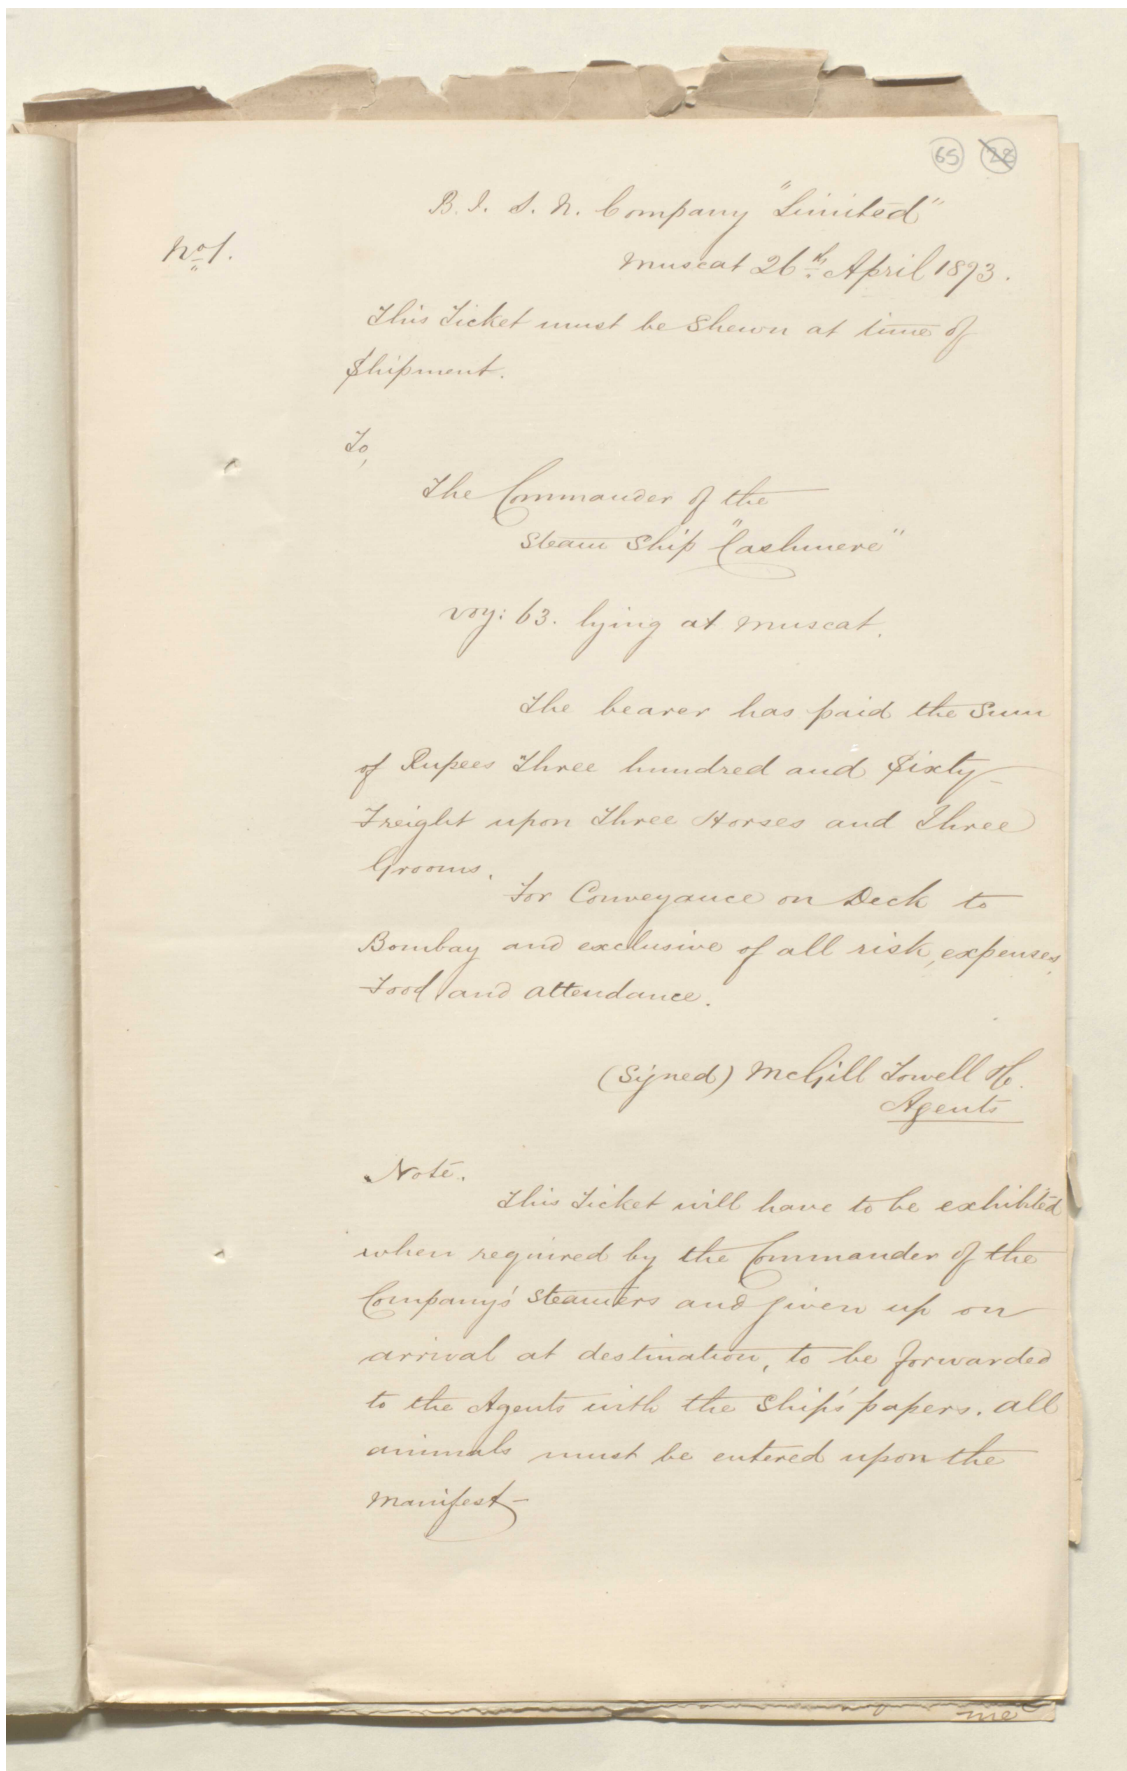 65 28
B. I. S. N. Company "Limited"
No 1.
Muscat 26th April 1893.
This Ticket must be Shewn at time of
Shipment.
To,
The Commander of the
Steam Ship "Cashmere"
voy: 63. lying at Muscat.
The bearer has paid the Sum
of Rupees Three hundred and Sixty
Freight upon Three Horses and Three
Grooms.
For Conveyance on Deck to
Bombay and exclusive of all risk, expenses,
Food and attendance.
(Signed) McGill Towell &
Agents
Note.
This Ticket will have to be exhibited
when required by the Commander of the
Company's Steamers and given up on
arrival at destination, to be forwarded
to the Agents with the Ship's papers. all
animals must be entered upon the
Manifest-
me